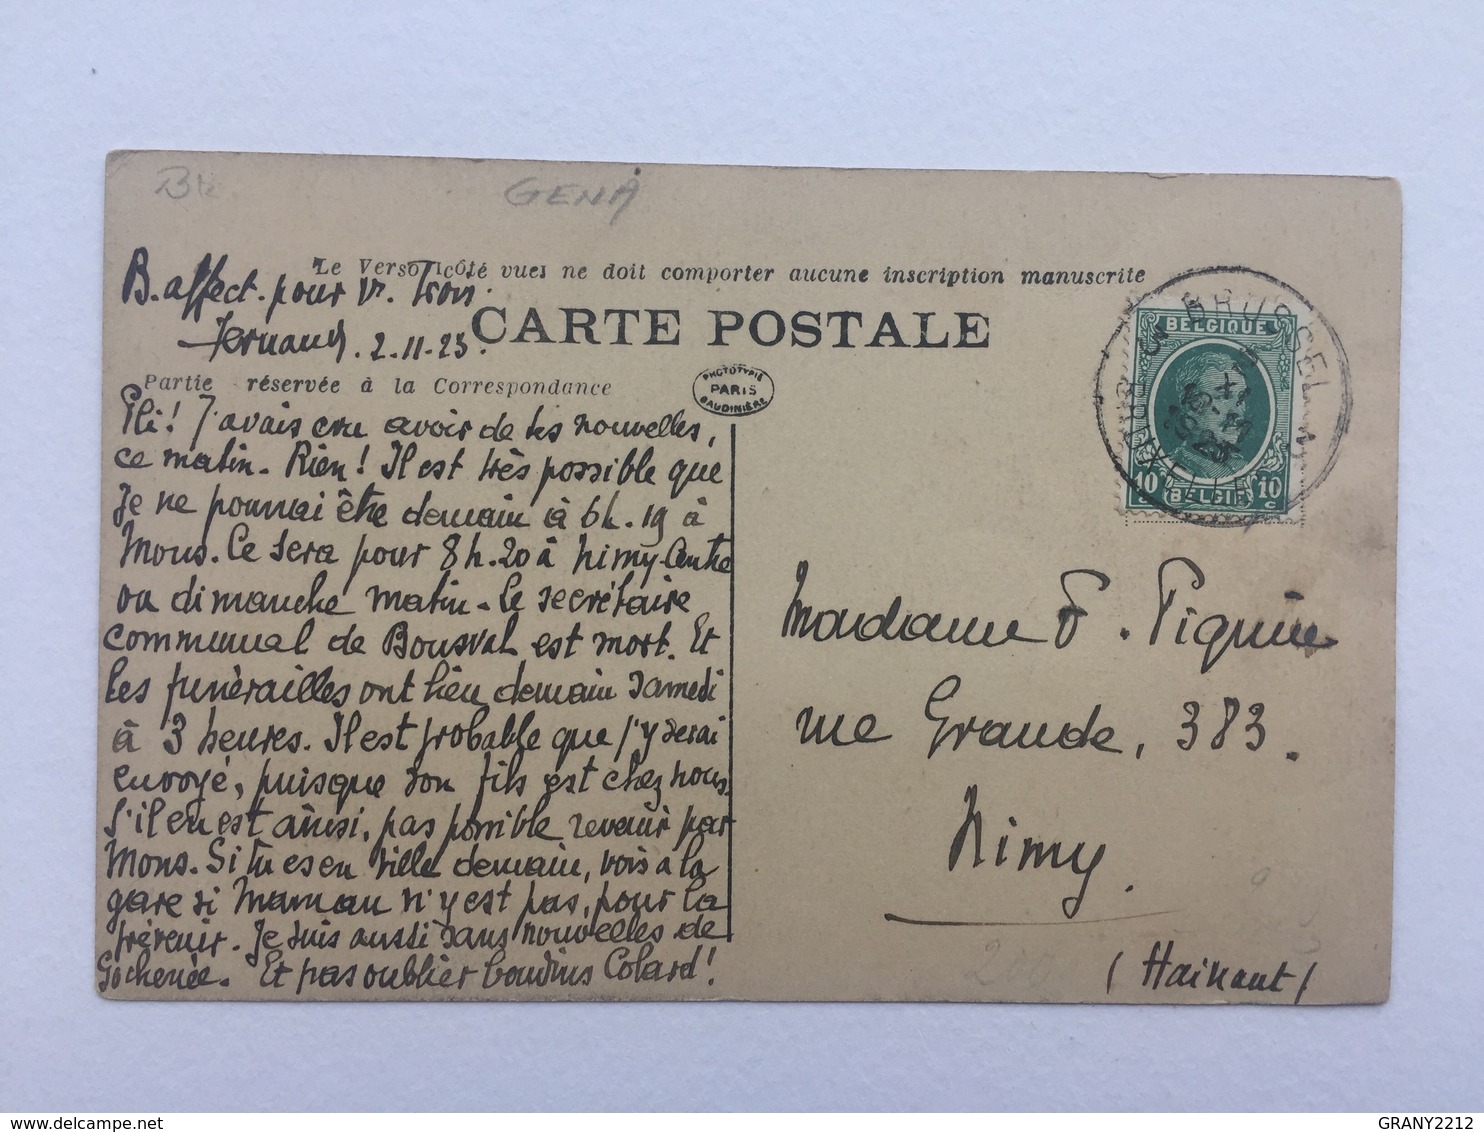 GENA
Le Verso (côté vues) ne doit comporter aucune inscription manuscrite
B. affect. pour vs. trois.
Fernand. 2.11.23.
CARTE POSTALE
Partie réservée à la Correspondance
PHOTOTYPIE
PARIS
BAUDINIÈRE
BRUSSEL 3
BRUXELLES 3
BELGIQUE
XI
10 C BELGIE 10 C
J'avais cru avoir de tes nouvelles,
ce matin. Rien! Il est très possible que
je ne pourrai être demain à 6h.19 à
Mons. Ce sera pour 8h.20 à Nimy-Centre
ou dimanche matin. Le secrétaire
communal de Bousval est mort. Et
les funèrailles ont lieu demain samedi
à 3 heures. Il est probable que j'y serai
envoyé, puisque son fils est chez nous.
S'il en est ainsi, pas possible revenir par
Mons. Si tu es en ville demain, vois à la
gare si Maman n'y est pas, pour la
prévenir. Je suis aussi sans nouvelles de
Gochenée. Et pas oublier boudins Colard!
Madame F. Piquin
rue Grande, 383.
Nimy.
(Hainaut)
GRANY2212